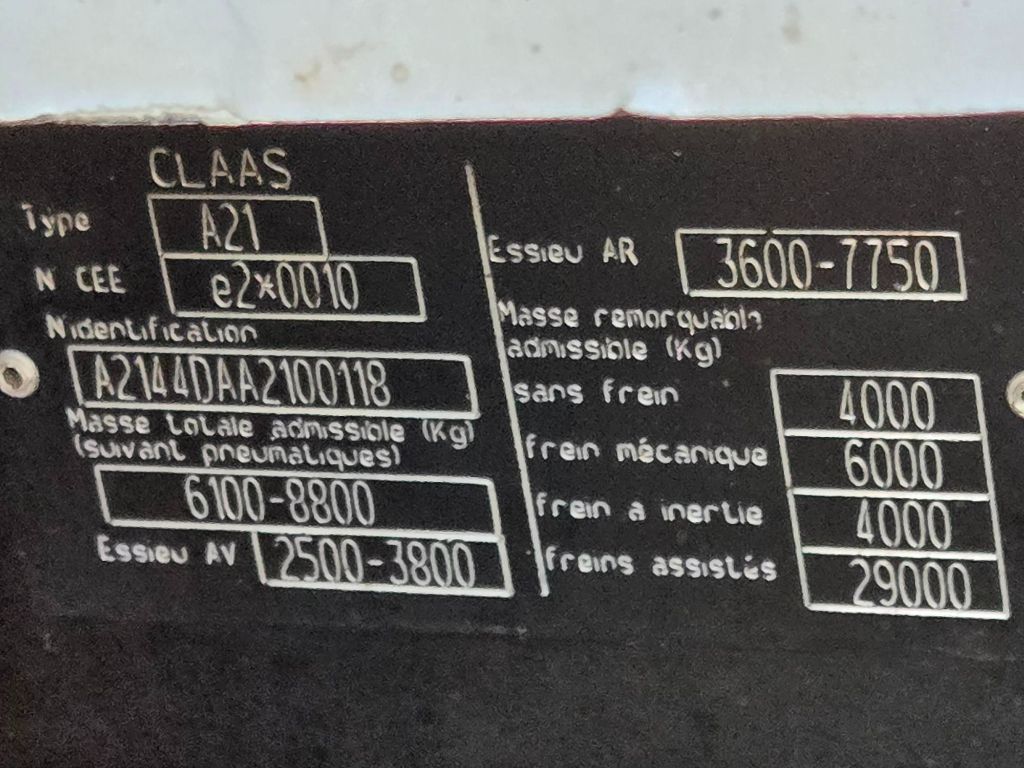 CLAAS
Type A21
N CEE e2*0010
N identification
A2144DAA2100118
Masse totale admissible (Kg)
(suivant pneumatiques)
6100-8800
Essieu AV 2500-3800
Essieu AR 3600-7750
Masse remorquable
admissible (Kg)
sans frein 4000
frein mécanique 6000
frein a inertie 4000
freins assistés 29000